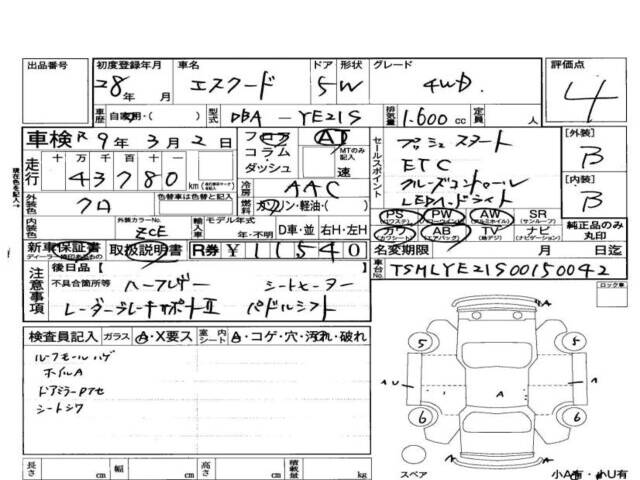 出品番号 初度登録年月 車名 ドア 形状 グレード 評価点
28年 月 エスクード 5 W 4WD 4
車歴 自家用・( ) 型式 DBA - YE21S 排気量 1.600 cc 定員 人
車検 R 9年 3月 2日 フロア AT
走行 十 万 千 百 十 一 コラム・ダッシュ MTのみ記入 速
43780 km
セールスポイント プッシュスタート
ETC
クルーズコントロール
LEDヘッドライト
[外装] B
[内装] B
冷房 AAC
外装色 クロ 色替車は色替と記入 燃料 ガソリン・軽油・( )
内装色 外装カラーNo. ZCE 輸入車 モデル年式 年・不明 D車・並 右H・左H
PS (パワステ) PW (パワーウインド) AW (アルミホイル) SR (サンルーフ) 純正品のみ丸印
カワ (カワシート) AB (エアバック) TV (地デジ) ナビ (ナビゲーション)
新車保証書 取扱説明書 R券 ¥11540 名変期限 月 日迄
注意事項 後日品【 】 車台No. TSMLYE21S00150042
不具合箇所等 ハーフレザー シートヒーター
レーダーブレーキサポートII パドルシフト
ロック車
検査員記入 ガラス A・X要ス 室内 シート A・コゲ・穴・汚れ・破れ
ルーフモールハゲ
ホイルA
シートシワ
A
5 5
A U A A
6 6
スペア
長さ cm 幅 cm 高さ cm 積載量 kg
小A有・小U有
現在色を記入